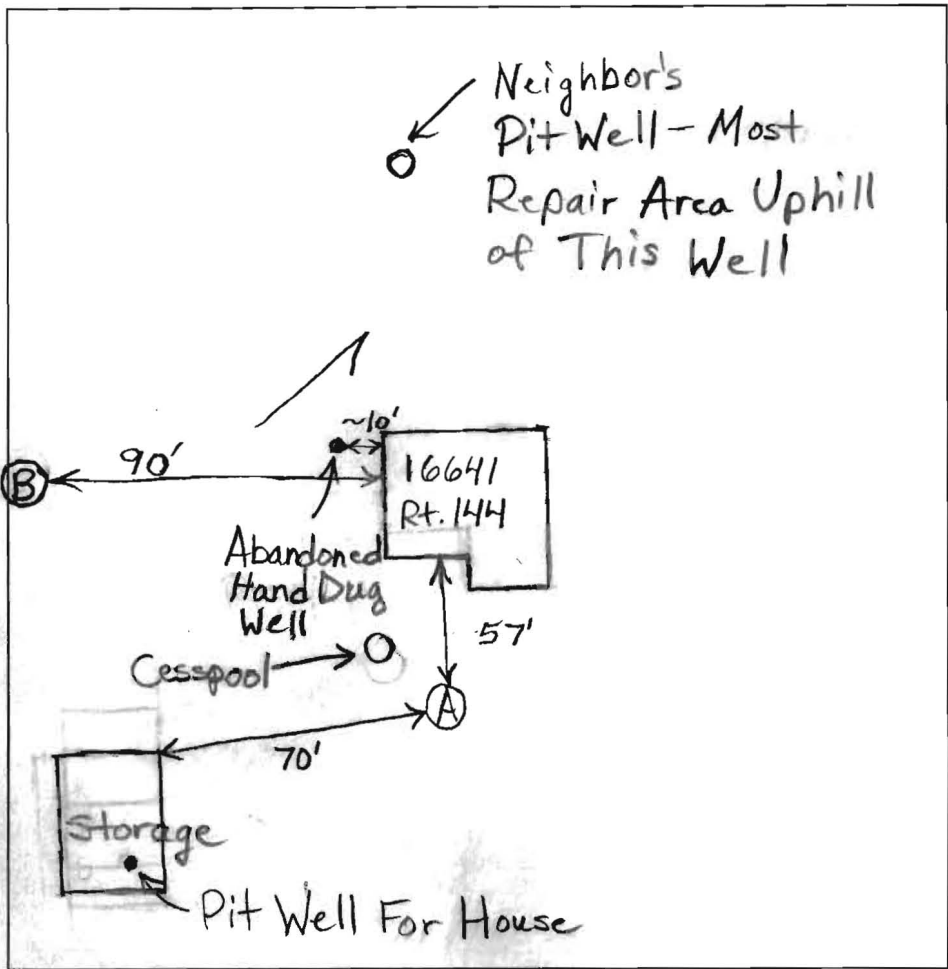 Neighbor's
Pit Well - Most
Repair Area Uphill
of This Well
~10'
90'
B
16641
Rt. 144
Abandoned
Hand Dug
Well
57'
Cesspool
A
70'
Storage
Pit Well For House